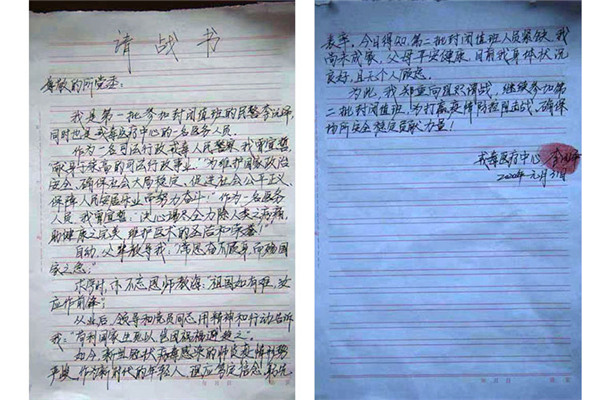 请战书
尊敬的所党委：
我是第一批参加封闭值班的民警李
同时也是戒毒医疗中心的一名医务人员。
作为一名司法行政戒毒人民警察，我曾宣誓：
献身于崇高的司法行政事业，为维护国家政治
安全、确保社会大局稳定、促进社会公平正义、
保障人民安居乐业而努力奋斗！作为一名医务
人员，我曾宣誓：决心竭尽全力除人类之病痛，
助健康之完美，维护医术的圣洁和荣誉！
自幼，父辈教导我：
国家之
求学时，亦不忘恩师教诲：祖国如有难，汝
应作前锋！
从业后，领导和党员同志用精神和行动告诉
我：苟利国家生死以，岂因祸福避趋之。
如今，新型冠状病毒感染的肺炎疫情形势
严峻，作为新时代的年轻人，理应笃定信念，勇
表率。今日得知，第二批封闭值班人员紧缺，我
尚未成家，父母平安健康，目前我身体状况
良好，且无个人顾虑。
为此，我郑重向组织请战，继续参加第
二批封闭值班，为打赢疫情防控阻击战、确保
场所安全稳定贡献力量！
戒毒医疗中心
2020年元月31日